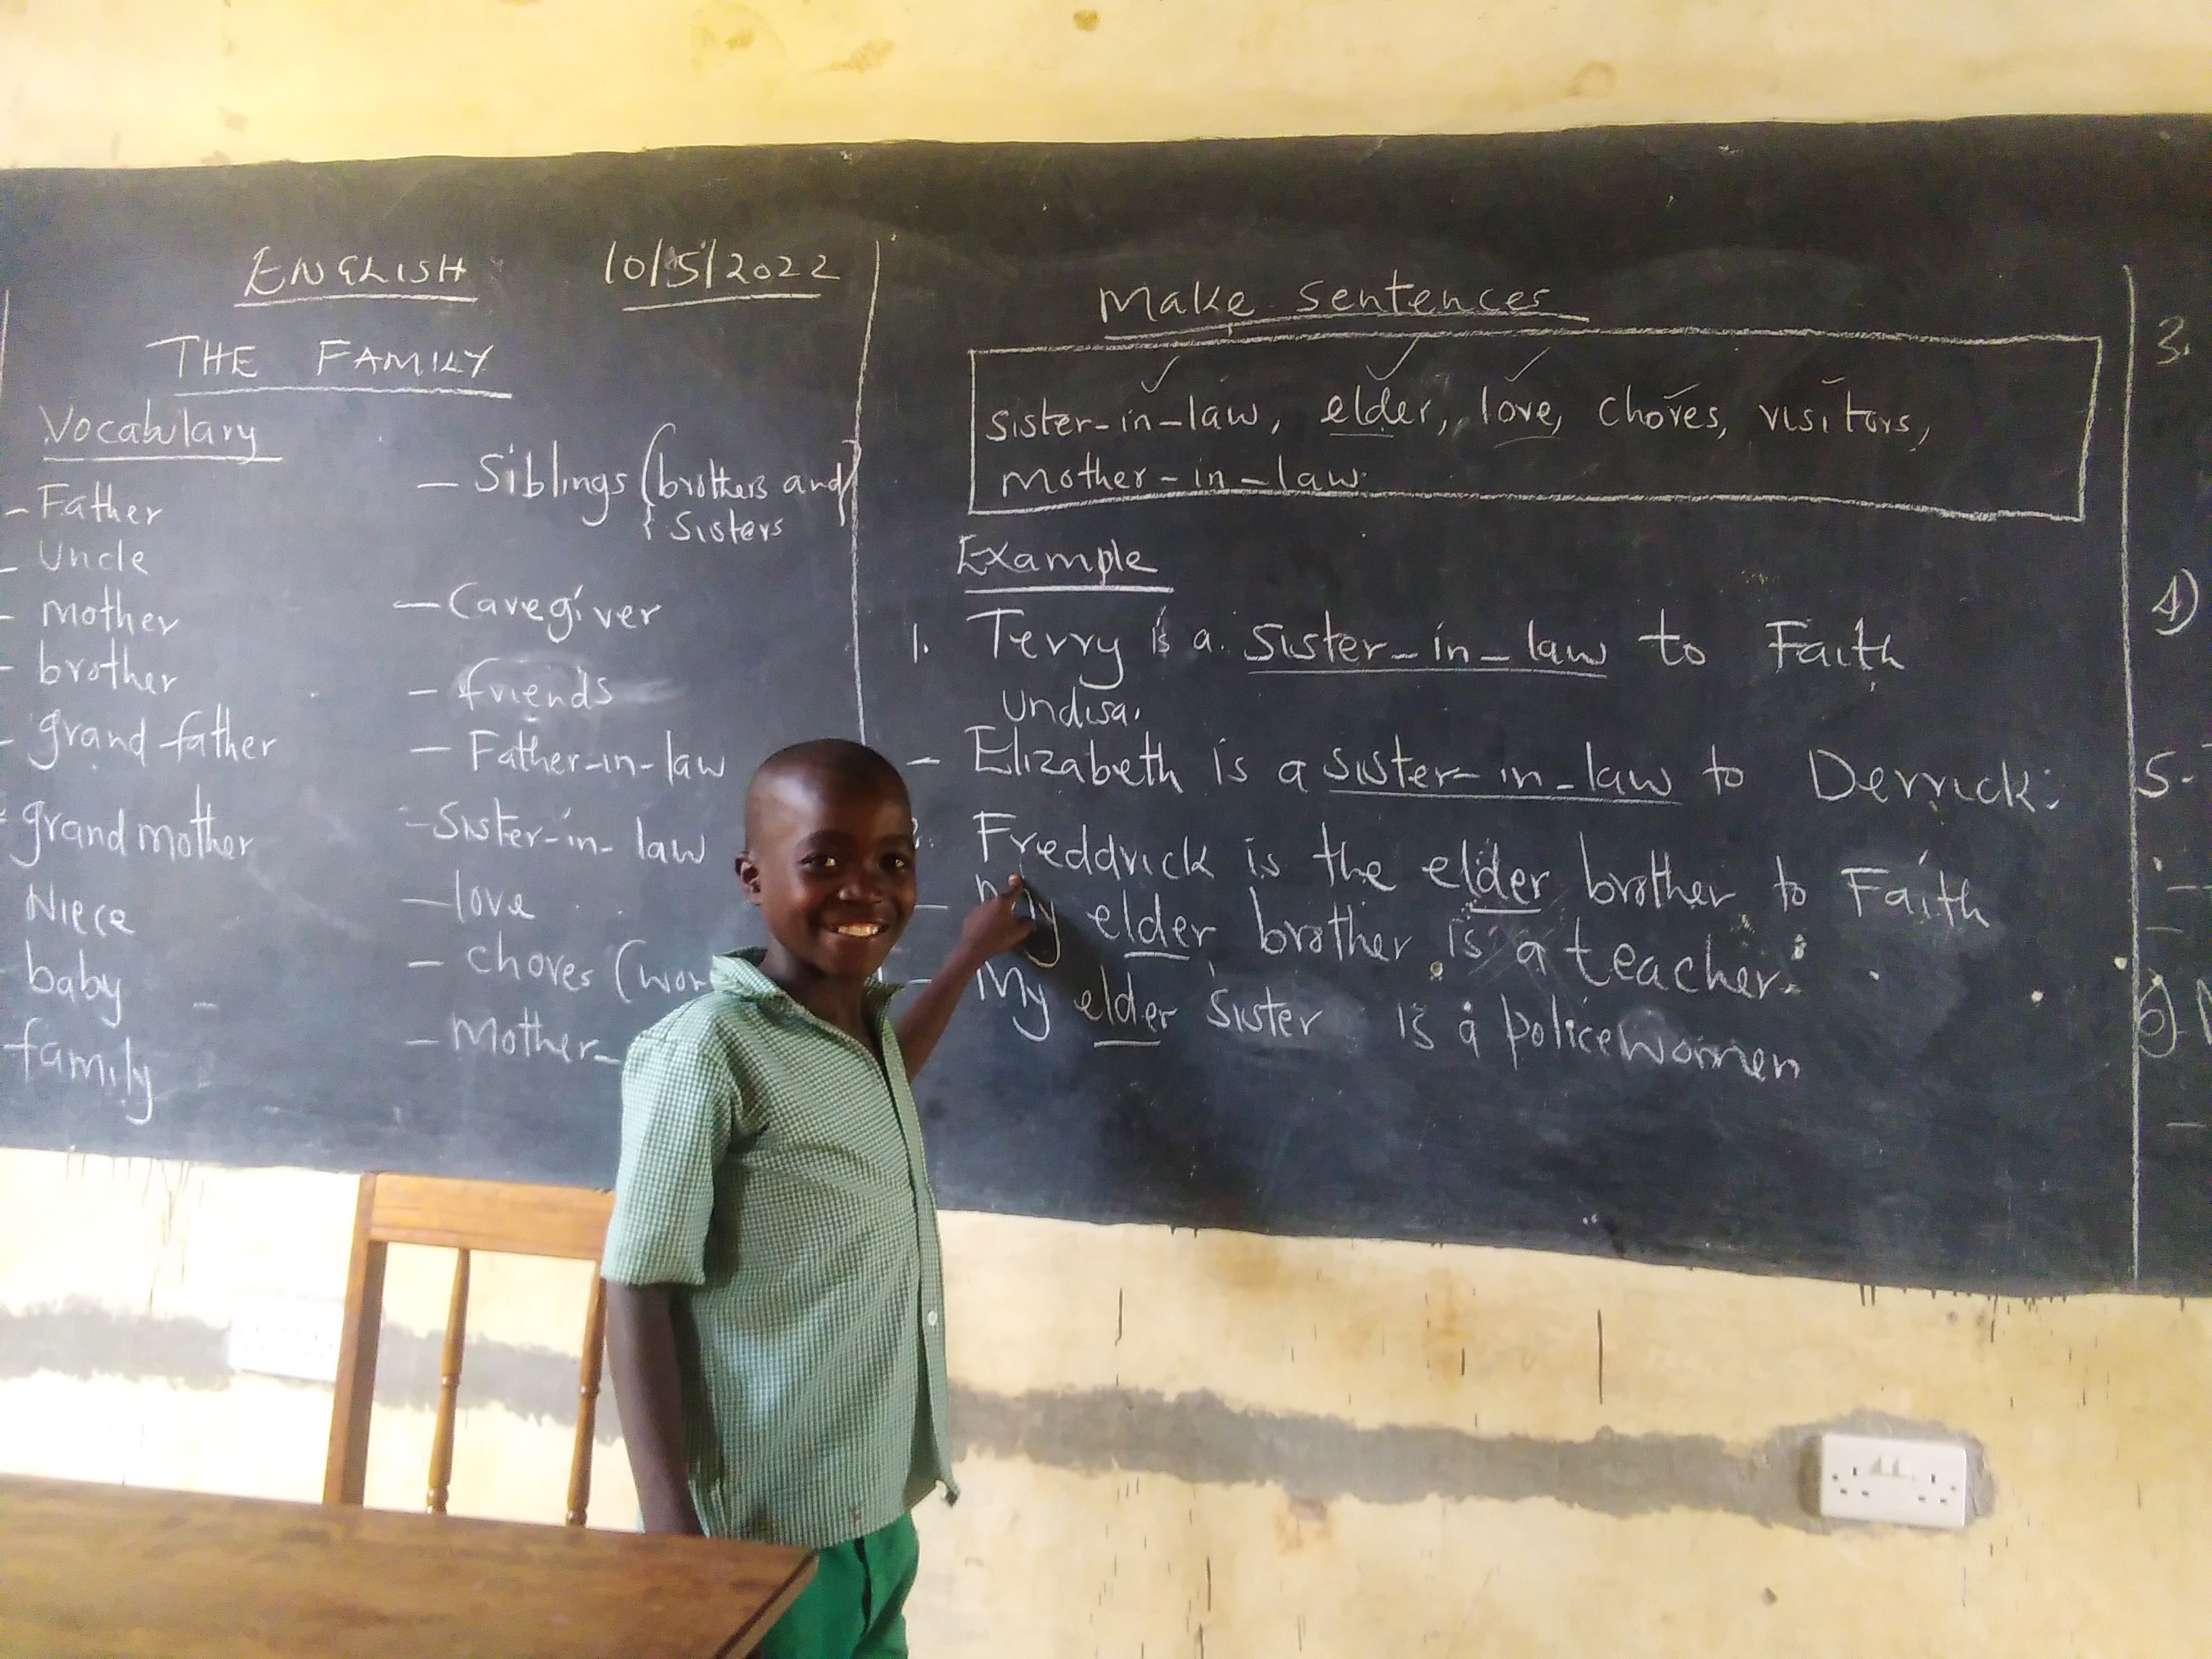 ENGLISH 10/5/2022
THE FAMILY
Vocabulary
- Father
- Uncle
- mother
- brother
- grand father
- grand mother
Niece
baby -
family
- Siblings (brothers and
sisters
- Caregiver
- friends
- Father-in-law
- Sister-in-law
- love
- chores (wor
- Mother-
Make sentences
sister-in-law, elder, love, chores, visitors,
mother-in-law.
Example
1. Terry is a sister-in-law to Faith
Undisa.
- Elizabeth is a sister-in-law to Derrick.
Freddrick is the elder brother to Faith
- My elder brother is a teacher.
- My elder sister is a policewomen
3.
4)
5.
6)